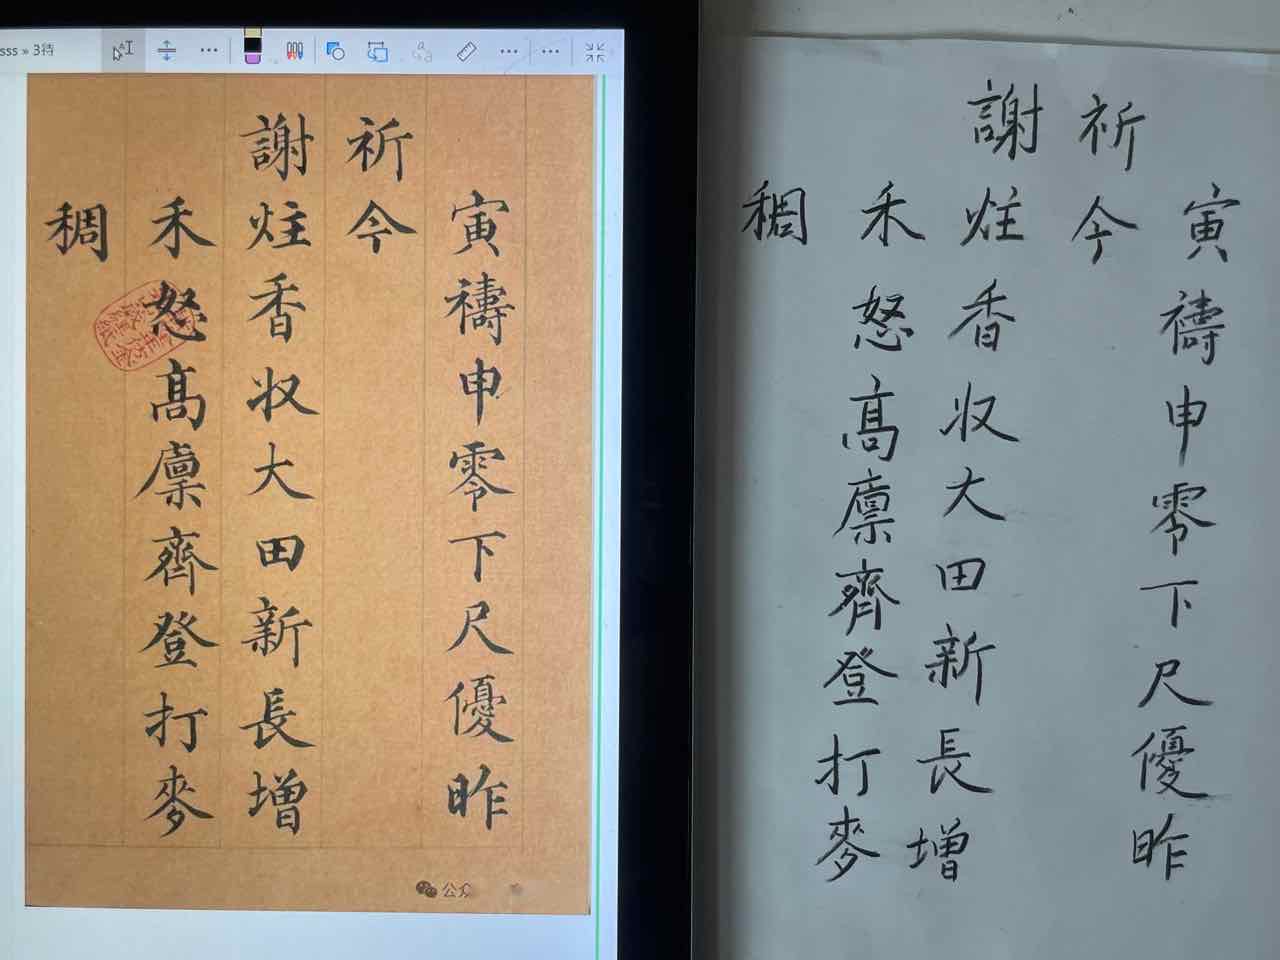 sss » 3待
寅禱申零下尺優昨
祈今
謝炷香収大田新長增
禾怒髙廪齊登打麥
稠
公众
寅禱申零下尺優昨
祈今
謝炷香収大田新長增
禾怒髙廪齊登打麥
稠